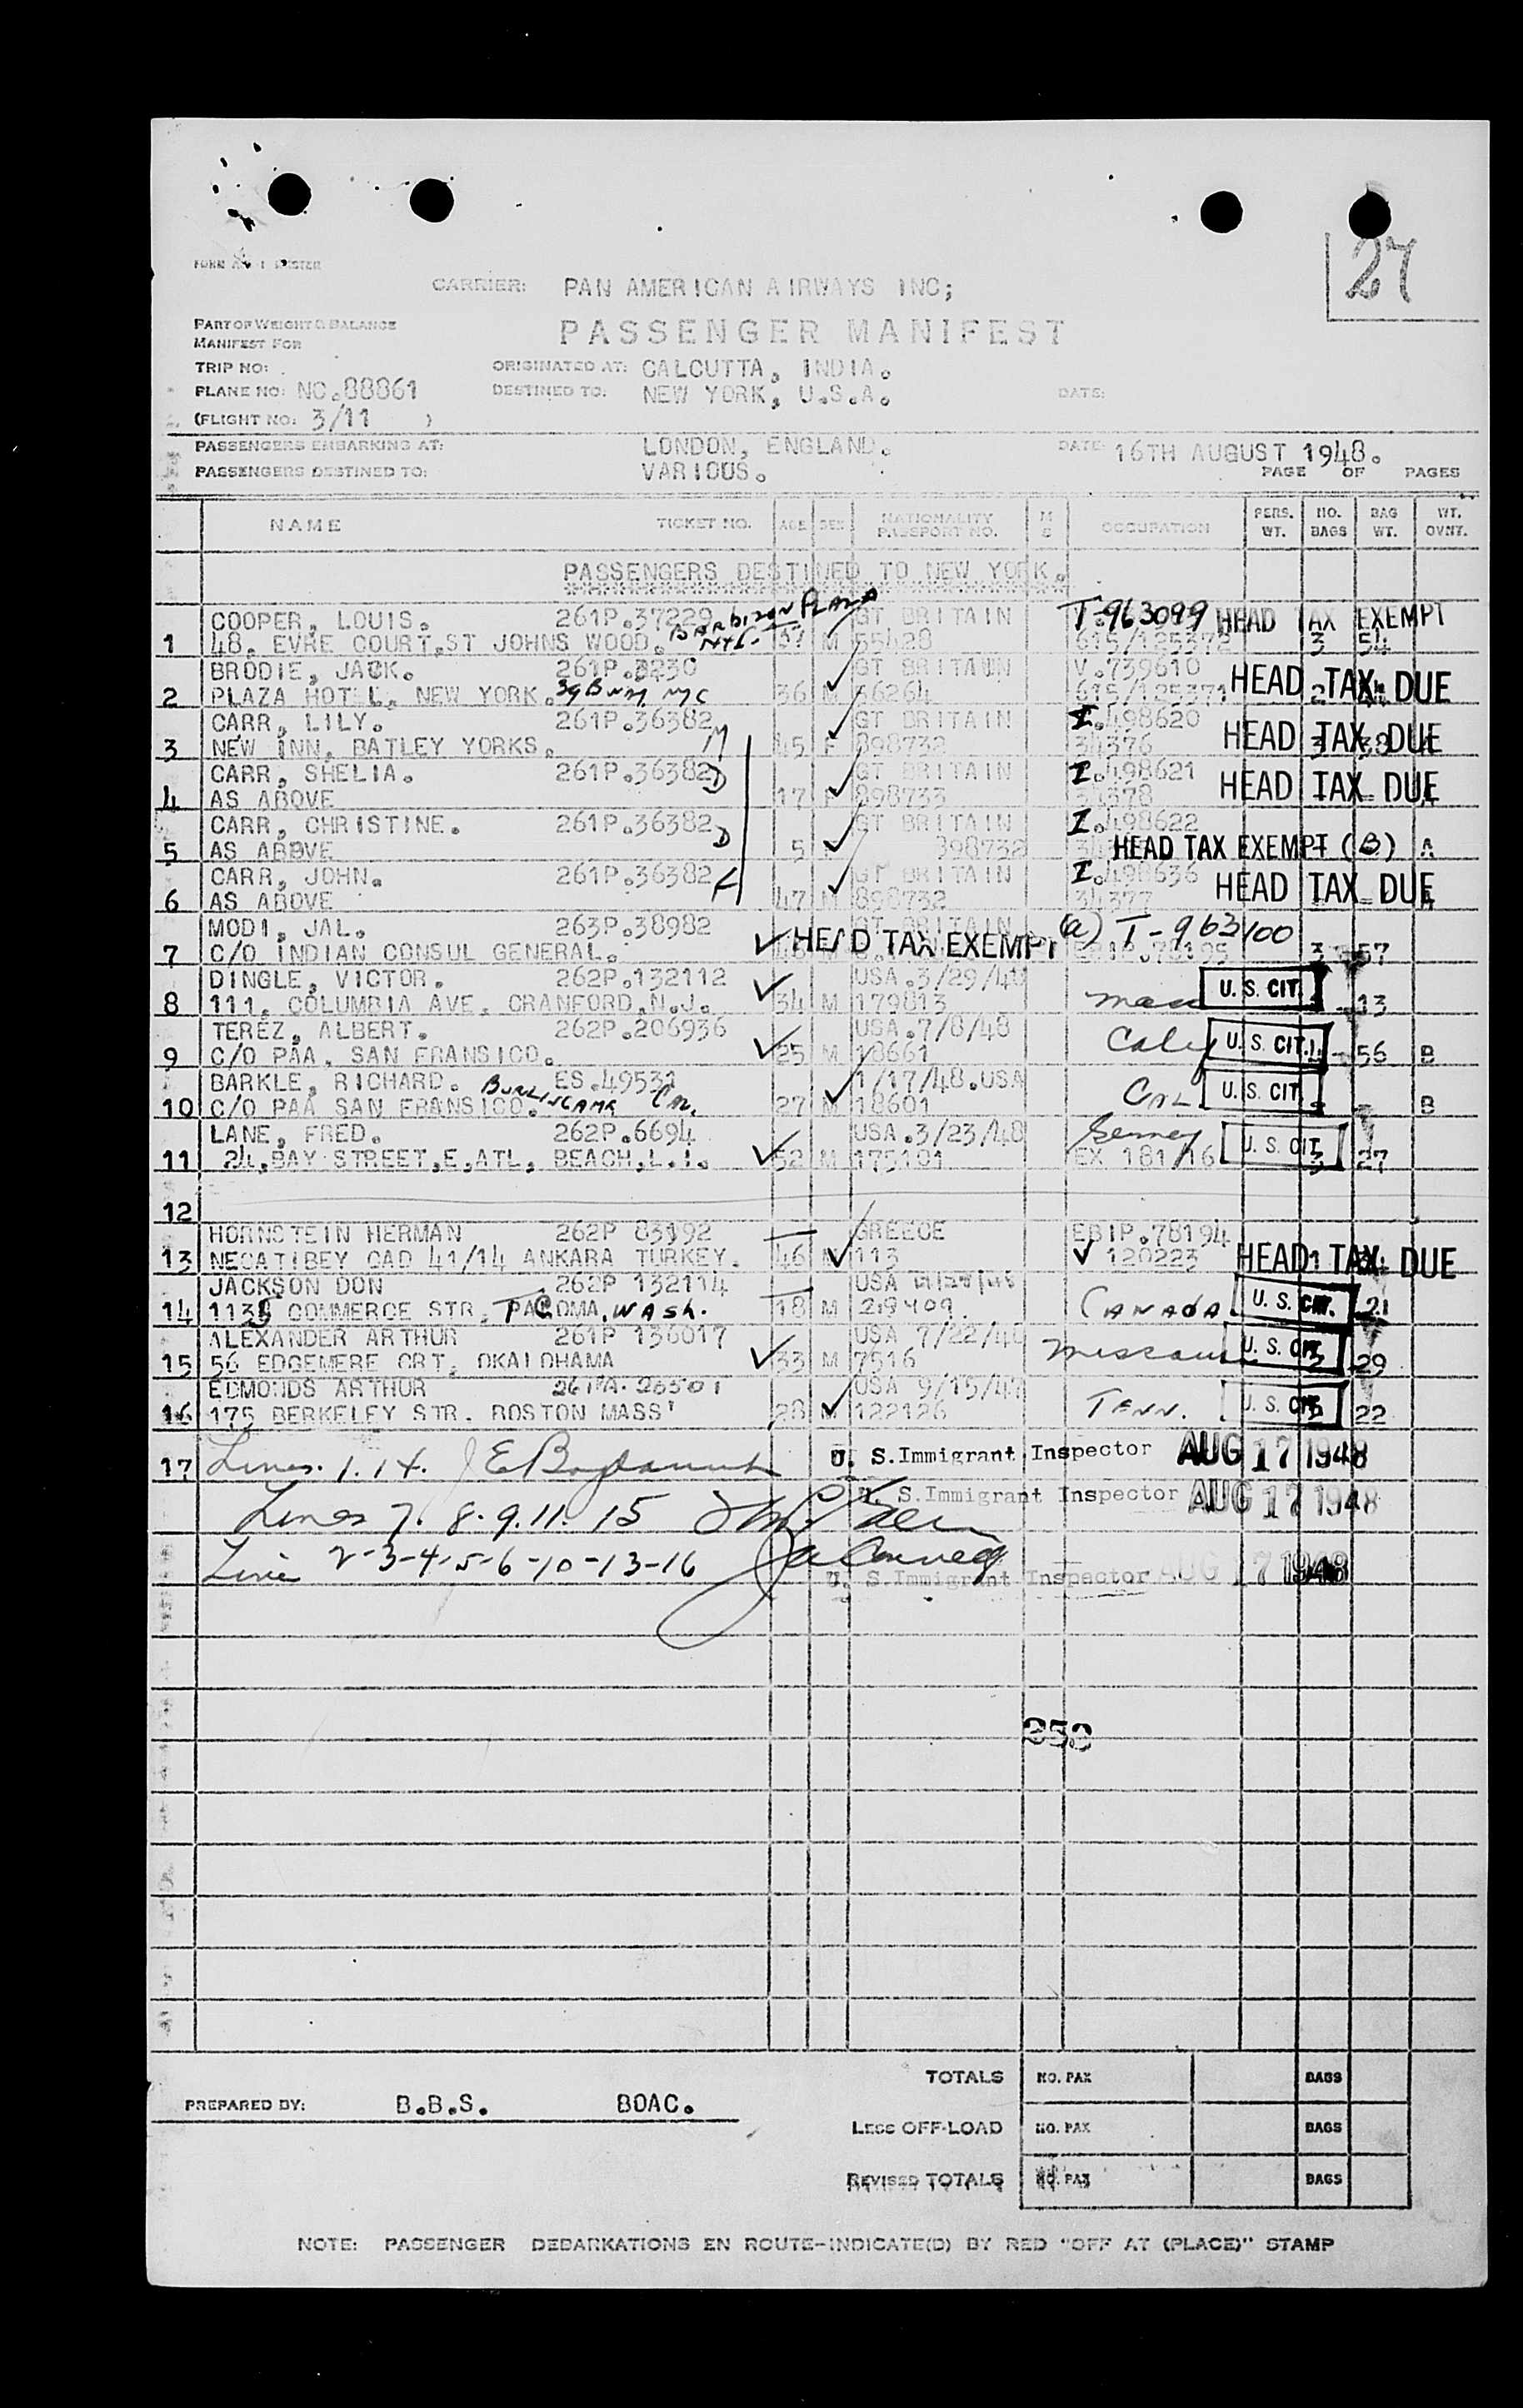 27
CARRIER: PAN AMERICAN AIRWAYS INC;
PART OF WEIGHT & BALANCE
MANIFEST FOR
PASSENGER MANIFEST
TRIP NO:
ORIGINATED AT: CALCUTTA, INDIA.
PLANE NO: NC.88861 DESTINED TO: NEW YORK, U.S.A. DATE:
(FLIGHT NO: 3/11 )
PASSENGERS EMBARKING AT: LONDON, ENGLAND. DATE: 16TH AUGUST 1948.
PASSENGERS DESTINED TO: VARIOUS. PAGE OF PAGES
NAME TICKET NO. AGE SEX NATIONALITY PASSPORT NO. M S OCCUPATION PERS. WT. NO. BAGS BAG WT. WT. OVNT.
PASSENGERS DESTINED TO NEW YORK.
COOPER, LOUIS. 261P.37229 BARBIZON PLAZA GT BRITAIN T-963099 HEAD TAX EXEMPT
1 48, EVRE COURT,ST JOHNS WOOD. 57 M 55428 615/125372 3 54
BRODIE, JACK. 261P.3230 GT BRITAIN V.739610
2 PLAZA HOTEL, NEW YORK. NYC 36 M 56264 615/125371 HEAD TAX DUE
CARR, LILY. 261P.36382 GT BRITAIN I.498620
3 NEW INN, BATLEY YORKS. M 45 F 898732 34376 HEAD TAX DUE
CARR, SHELIA. 261P.36382 GT BRITAIN I.498621
4 AS ABOVE D 17 F 898733 34378 HEAD TAX DUE
CARR, CHRISTINE. 261P.36382 GT BRITAIN I.498622
5 AS ABOVE D 5 F 898732 HEAD TAX EXEMPT (B) A
CARR, JOHN. 261P.36382 GT BRITAIN I.498636
6 AS ABOVE 47 M 898732 34377 HEAD TAX DUE
MODI, JAL. 263P.38982 GT BRITAIN (a) T-963100
7 C/O INDIAN CONSUL GENERAL. HEAD TAX EXEMPT EBIP.78195 3 57
DINGLE, VICTOR. 262P.132112 USA.3/29/48
8 111, COLUMBIA AVE, CRANFORD,N.J. 34 M 179813 mass U. S. CIT. 13
TEREZ, ALBERT. 262P.206936 USA.7/8/48
9 C/O PAA, SAN FRANSICO. 25 M 18661 Calif U. S. CIT. 56 B
BARKLE, RICHARD. ES.49531 1/17/48.USA
10 C/O PAA SAN FRANSICO. BURLINGAME CAL. 27 M 18601 CAL U. S. CIT. B
LANE, FRED. 262P.6694 USA.3/23/48
11 24,BAY STREET,E,ATL, BEACH,L.I. 52 M 175101 EX 181/16 U. S. CIT. 3 27
12
HORNSTEIN HERMAN 262P 83192 GREECE EBIP.78194
13 NECATIBEY CAD 41/14 ANKARA TURKEY. 46 M 113 120223 HEAD TAX DUE
JACKSON DON 262P 132114 USA
14 1139 COMMERCE STR, TACOMA, WASH. 18 M 219409 CANADA U. S. CIT. 21
ALEXANDER ARTHUR 261P 136017 USA 7/22/48
15 56 EDGEMERE CRT, OKALOHAMA 33 M 7516 Missouri U. S. CIT. 29
EDMONDS ARTHUR 261PA.26501 USA 9/15/47
16 175 BERKELEY STR. BOSTON MASS' 28 M 122126 TENN. U. S. CIT. 22
17 Lines. 1. 14. U. S.Immigrant Inspector AUG 17 1948
Lines 7. 8. 9. 11. 15 U. S.Immigrant Inspector AUG 17 1948
Line 2-3-4-5-6-10-13-16 U. S.Immigrant Inspector AUG 17 1948
253
TOTALS NO. PAX BAGS
PREPARED BY: B.B.S. BOAC.
LESS OFF-LOAD NO. PAX BAGS
REVISED TOTALS NO. PAX BAGS
NOTE: PASSENGER DEBARKATIONS EN ROUTE-INDICATE(D) BY RED "OFF AT (PLACE)" STAMP